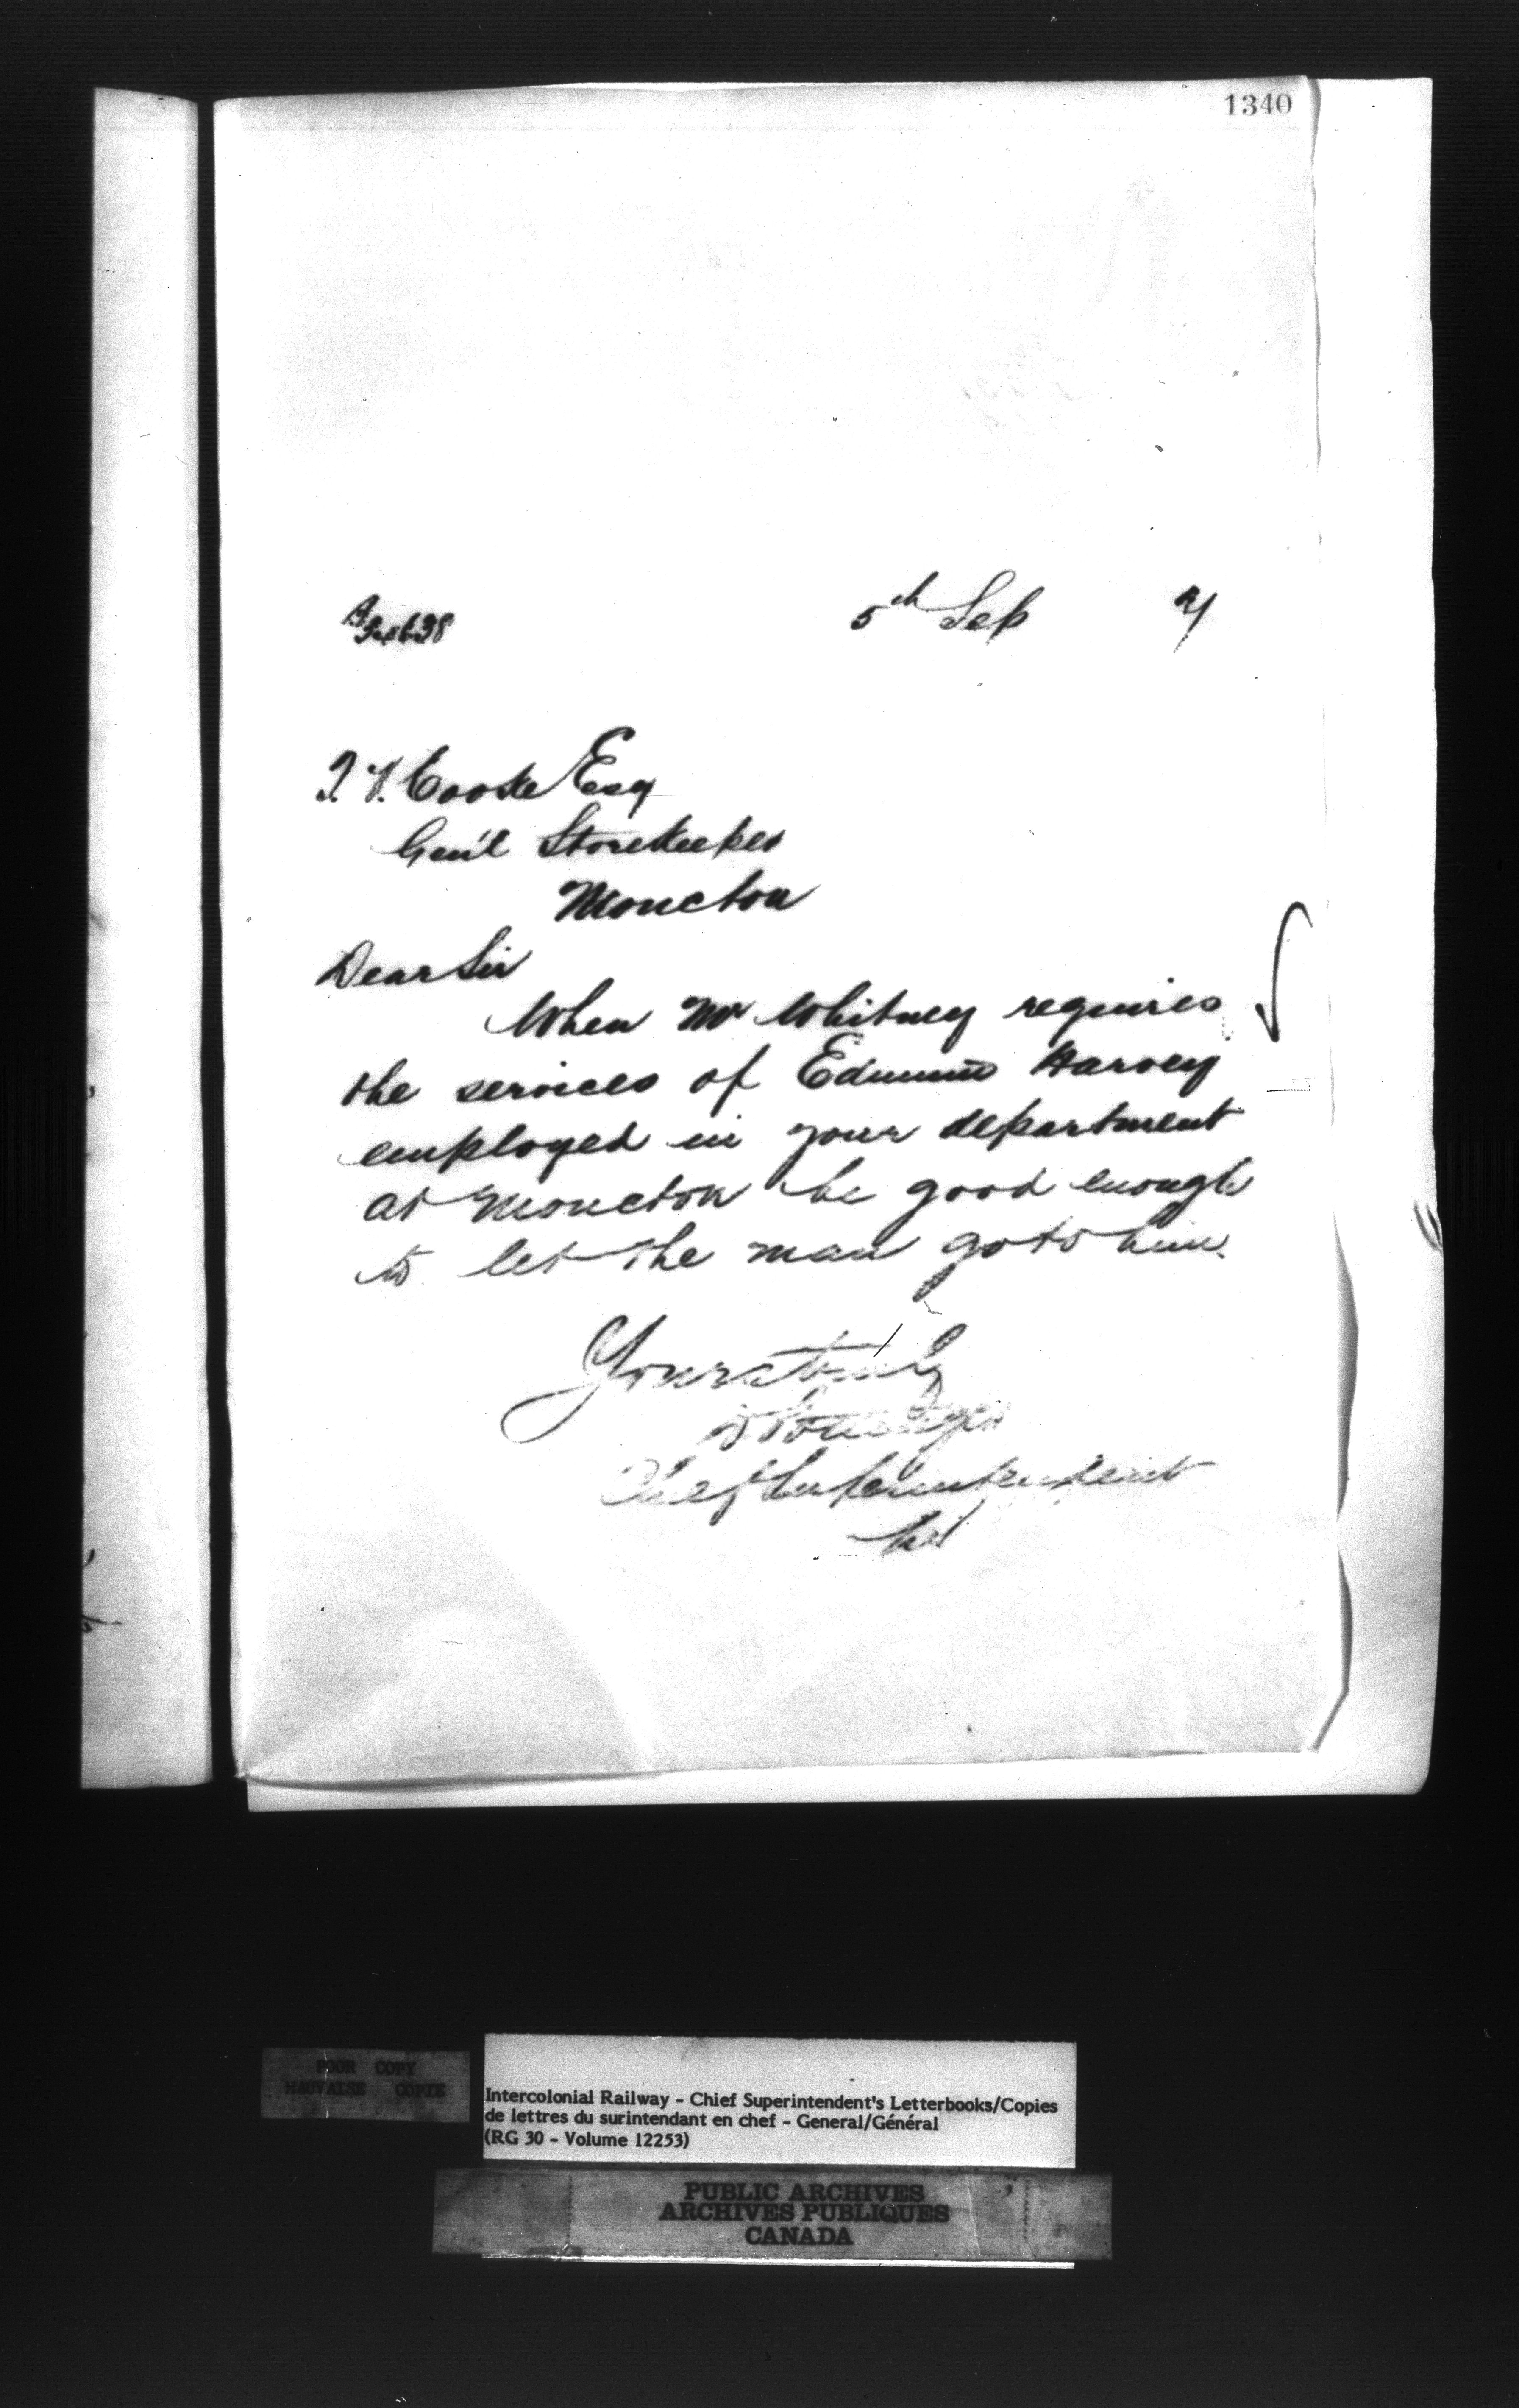 1340
5th Sep
T. V. Cooke Esq
Gen'l Storekeeper
Moncton
Dear Sir
When Mr Whitney requires
the services of Edmund Harvey
employed in your department
at Moncton be good enough
to let the man go to him.
Yours truly
D Pottinger
Chief Superintendent
POOR COPY
MAUVAISE COPIE
Intercolonial Railway - Chief Superintendent's Letterbooks/Copies
de lettres du surintendant en chef - General/Général
(RG 30 - Volume 12253)
PUBLIC ARCHIVES
ARCHIVES PUBLIQUES
CANADA